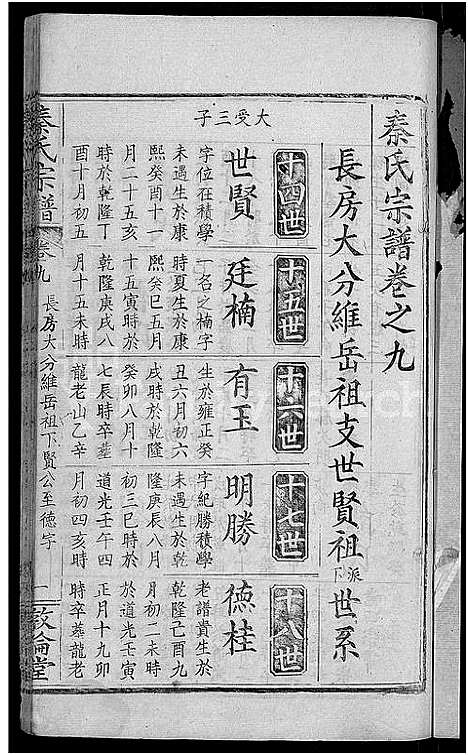 秦氏宗譜卷之九
長房大分維岳祖支世賢祖派下世系
十四世
十五世
十六世
十七世
十八世
大受三子
世賢
字位在積學
未遇生於康
熙癸酉十一
月二十五亥
時於乾隆丁
酉十月初五
廷楠
一名之楠字
時夏生於康
熙癸巳五月
十五寅時於
乾隆庚戌八
月十五未時
有玉
生於雍正癸
丑六月初六
戌時於乾隆
癸卯八月十
七辰時卒塟
龍老山乙辛
明勝
字紀勝積學
未遇生於乾
隆庚辰八月
初三巳時於
道光壬午四
月初四亥時
德桂
老譜貴生於
乾隆己酉九
月初二未時
於道光壬寅
正月十九卯
時卒塟龍老
秦氏宗譜
卷九
長房大分維岳祖下賢公至德字
一
敦倫堂